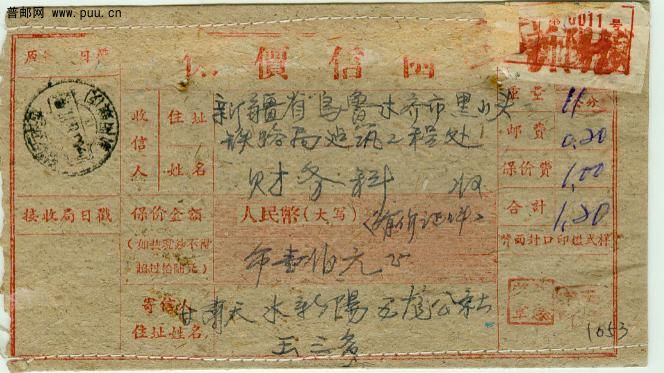 普邮网
www.puu.cn
第 0011 号
保價信函
原 日戳
收信人
住址
新疆省乌鲁木齐市黑山头
铁路局建筑工程处
姓名
财务科 收
重量 11 分
邮费 0.20
保价费 1.00
合計 1.20
接收局日戳
保价金额
人民幣(大写)
(有价证件)
(如装現鈔不得
超过拾陆元)
币壹佰元正
背面封口印槛式样
寄信人
住址姓名
甘肃天水新陽 公社
王三
1053